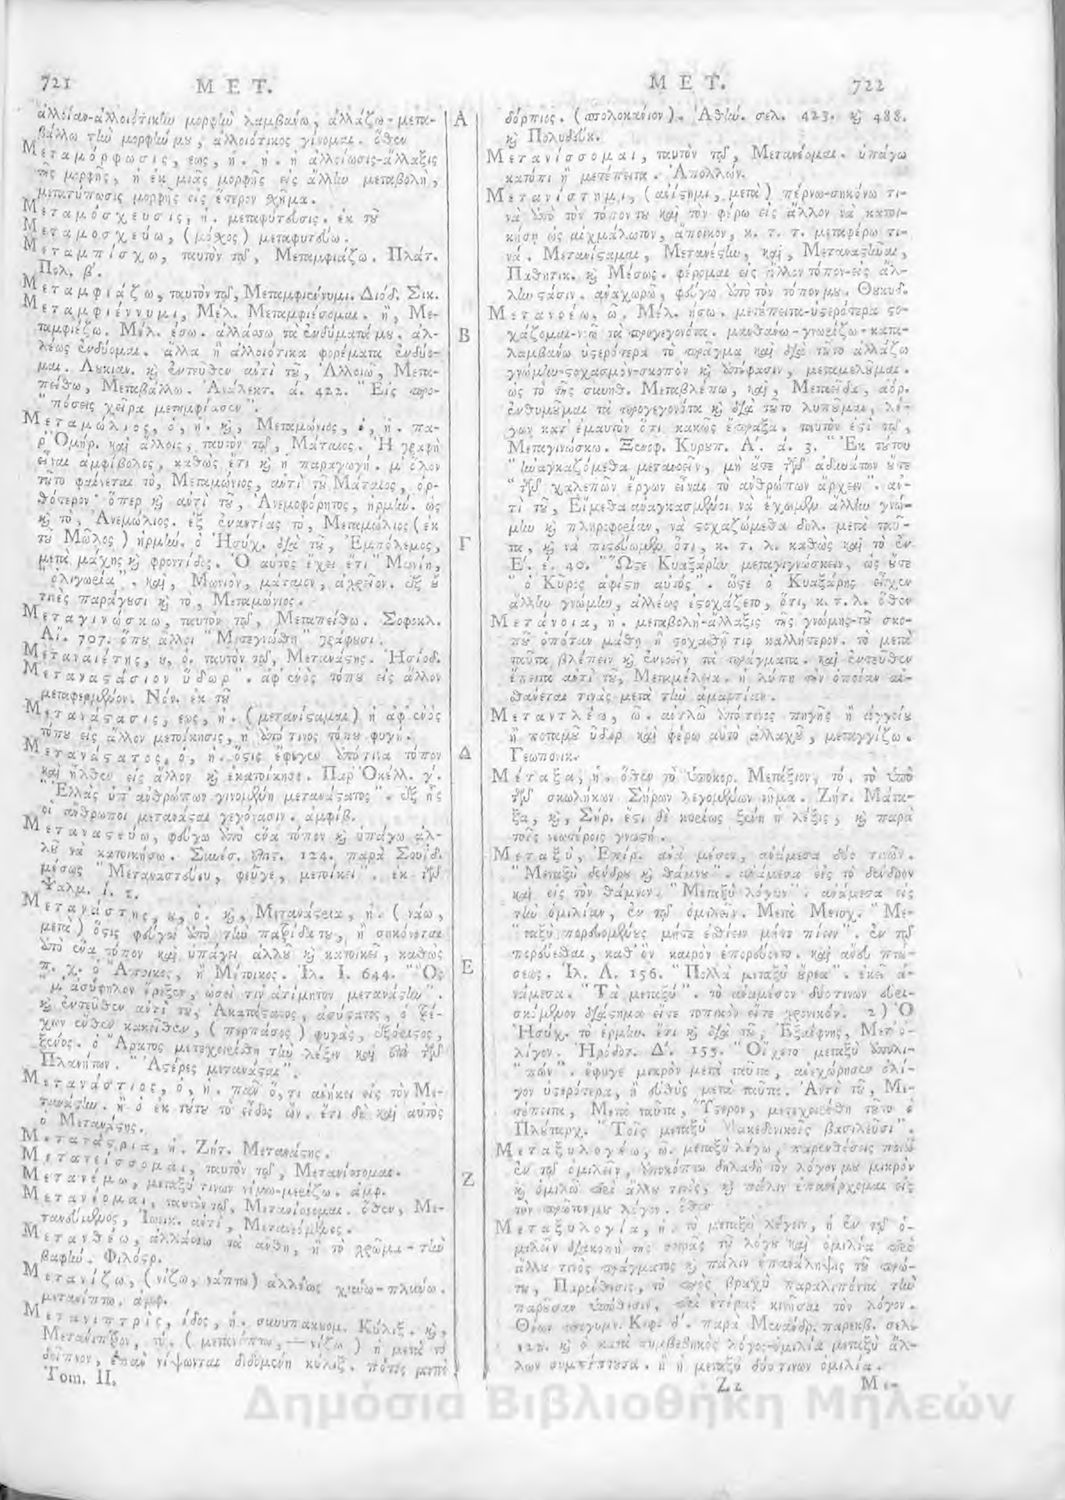 721 ΜΕΤ.
ἀλλοίαν-ἀλλοιότικην μορφὴν λαμβάνω, ἀλλάζω-μετα-
βάλλω τὴν μορφήν μου, ἀλλοιότικος γίνομαι. ὅθεν
Μεταμόρφωσις, εως, ἡ. ἡ ἀλλοίωσις-ἄλλαξις
τῆς μορφῆς, ἡ ἐκ μιᾶς μορφῆς εἰς ἄλλην μεταβολή,
μετατύπωσις μορφῆς εἰς ἕτερον σχῆμα.
Μεταμόσχευσις, ἡ. μεταφύτευσις. ἐκ τοῦ
Μεταμοσχεύω, (μόσχος) μεταφυτεύω.
Μεταμπίσχω, ταυτὸν τῷ, Μεταμφιάζω. Πλάτ.
Πολ. β'.
Μεταμφιάζω, ταυτὸν τῷ, Μεταμφιέννυμι. Διόδ. Σικ.
Μεταμφιέννυμι, Μέλ. Μεταμφιέσομαι. ἢ, Με-
ταμφιέζω. Μέλ. έσω. ἀλλάσσω τὰ ἐνδύματά μου. ἀλ-
λέως ἐνδύομαι. ἄλλα ἢ ἀλλοιότικα φορέματα ἐνδύο-
μαι. Λουκιαν. καὶ ἐντεῦθεν ἀντὶ τοῦ, Ἀλλοιῶ, Μετα-
πείθω, Μεταβάλλω. Ἀνάλεκτ. ά. 422. "Εἰς
Μεταμώλιος, ὁ, ἡ. καὶ, Μεταμώνιος, ὁ, ἡ. πα-
ρ' Ὁμήρ. καὶ ἄλλοις, ταυτὸν τῷ, Μάταιος. Ἡ γραφὴ
εἶναι ἀμφίβολος, καθὼς ἔτι καὶ ἡ παραγωγή. μ' ὅλον
τοῦτο φαίνεται τό, Μεταμώνιος, ἀντὶ τοῦ Μάταιος, ὀρ-
θότερον· ὅπερ καὶ ἀντὶ τοῦ, Ἀνεμοφόρητος, ἡρμήν. ὡς
καὶ τὸ, Ἀνεμώλιος. ἐξ ἐναντίας τὸ, Μεταμώλιος (ἐκ
τοῦ Μῶλος) ἡρμήν. ὁ Ἡσύχ. διὰ τοῦ, Ἐμπόλεμος,
μετὰ μάχης καὶ φροντίδος. Ὁ αὐτὸς ἔχει ἔτι "Μωνίη,
ὀλιγωρία". καὶ, Μώνιον, μάταιον, ἀχρεῖον. ἐξ οὗ
τινὲς παράγουσι καὶ τὸ, Μεταμώνιος.
Μεταγινώσκω, ταυτὸν τῷ, Μεταπείθω. Σοφοκλ.
Αἰ. 707. ὅπου ἄλλοι "Μετεγνώσθη" γράφουσι.
Μεταναιέτης, ου, ὁ. ταυτὸν τῷ, Μετανάστης. Ἡσίοδ.
Μεταναστάσιον ὕδωρ". ἀφ' ἑνὸς τόπου εἰς ἄλλον
μεταφερμένον. Νόν. ἐκ τοῦ
Μετανάστασις, εως, ἡ. (μετανίσταμαι) ἡ ἀφ' ἑνὸς
τόπου εἰς ἄλλον μετοίκησις, ἡ ἀπό τινος τόπου φυγή.
Μετανάστατος, ὁ, ἡ. ὅστις ἔφυγεν ἀπό τινα τόπον
καὶ ἦλθεν εἰς ἄλλον καὶ ἐκατοίκησε. Παρ' Ὀκέλλ. γ'.
"Ἑλλὰς ὑπ' ἀνθρώπων γινομένη μετανάστατος". ἐξ ἧς
οἱ ἄνθρωποι μετανάσται γεγόνασιν. ἀμφίβ.
Μεταναστεύω, φεύγω ἀπὸ ἕνα τόπον καὶ ὑπάγω ἀλ-
λοῦ νὰ κατοικήσω. 124. παρὰ Σουΐδ.
μέσως "Μεταναστεύου, φεῦγε, μετοίκει". ἐκ τῶν
Ψαλμ.
Μετανάστης, ου, ὁ. καὶ, Μετανάστεια, ἡ. (νάω,
μετὰ) ὅστις φεύγει ἀπὸ τὴν πατρίδα του, ἢ σηκόνεται
ἀπὸ ἕνα τόπον καὶ ὑπάγει ἀλλοῦ καὶ κατοικεῖ, καθὼς
π. χ. ὁ Ἄποικος, ἢ Μέτοικος. Ἰλ. Ι. 644.
μ' ἀσύφηλον ἔρεξεν, ὡσεί τιν' ἀτίμητον μετανάστην".
Πλανήτων. "Ἀστέρες μετανάσται".
Μετανάστιος, ὁ, ἡ. πᾶν ὅ,τι ἀνήκει εἰς τὸν Με-
τανάστην. ἢ ὁ ἐκ τούτου τὸ εἶδος ὤν. ἔτι δὲ καὶ αὐτὸς
ὁ Μετανάστης.
Μετανάστρια, ἡ. Ζήτ. Μετανάστης.
Μετανείσσομαι, ταυτὸν τῷ, Μετανίσσομαι.
Μετανέμω, μεταξύ τινων νέμω-μοιράζω. ἀμφ.
Μετανέομαι, ταυτὸν τῷ, Μετανίσσομαι. ὅθεν, Με-
τανεύμενος, Ἰωνικ. ἀντὶ, Μετανεόμενος.
Μετανθέω, ἀλλάσσω τὰ ἄνθη, ἢ τὸ χρῶμα-τὴν
βαφήν. Φιλόστρ.
Μετανίζω, (νίζω, νίπτω) ἀλλέως χύνω-πλύνω.
μετανίπτω. ἀμφ.
Μετανιπτρίς, ίδος, ἡ. συνυπακουομ. Κύλιξ. καὶ,
Μετάνιπτρον, τὸ. (μετανίπτω, — νίζω) ἡ μετὰ τὸ
δεῖπνον,
Tom. II.
Α
Β
Γ
Δ
Ε
Ζ
ΜΕΤ. 722
δόρπιος. (ἀπολοκαύιον). Ἀθήν. σελ. 423. καὶ 488.
καὶ Πολυδεύκ.
Μετανίσσομαι, ταυτὸν τῷ, Μετανέομαι. ὑπάγω
κατόπι ἢ μετέπειτα. Ἀπολλών.
Μετανίστημι, (ἀνίστημι, μετὰ) πέρνω-σηκόνω τι-
νὰ ἀπὸ τὸν τόπον του καὶ τὸν φέρω εἰς ἄλλον νὰ κατοι-
κήσῃ ὡς αἰχμάλωτον, ἄποικον, κ. τ. τ. μεταφέρω τι-
νά. Μετανίσταμαι, Μετανέστην, καὶ, Μεταναστῆναι,
Παθητικ. καὶ Μέσως. φέρομαι εἰς ἄλλον τόπον-εἰς ἄλ-
λην στάσιν. ἀναχωρῶ, φεύγω ἀπὸ τὸν τόπον μου. Θουκυδ.
Μετανοέω, ῶ. Μέλ. ήσω. μετέπειτα-ὑστερότερα στο-
χάζομαι-νοῶ τὰ προγεγονότα. μανθάνω-γνωρίζω-κατα-
λαμβάνω ὑστερότερα τὸ πρᾶγμα καὶ διὰ τοῦτο ἀλλάζω
γνώμην-στοχασμὸν-σκοπὸν καὶ ἀπόφασιν, μεταμελοῦμαι.
ὡς τὸ τῆς συνηθ. Μεταβλέπω, καὶ, Μετεῖδα, ἀόρ.
ἐνθυμοῦμαι τὰ προγεγονότα καὶ διὰ τοῦτο λυποῦμαι, λέ-
γων κατ' ἐμαυτὸν ὅτι κακῶς ἔπραξα. ταυτὸν ἐστὶ τῷ,
Μεταγινώσκω. Ξενοφ. Κυρουπ. Ά. ά. 3. "Ἐκ τούτου
"ἠναγκαζόμεθα μετανοεῖν, μὴ οὔτε τῶν ἀδυνάτων οὔτε
"τῶν χαλεπῶν ἔργων εἶναι τὸ ἀνθρώπων ἄρχειν". ἀν-
τὶ τοῦ, Εἴμεθα ἀναγκασμένοι νὰ ἔχωμεν ἄλλην γνώ-
μην καὶ πληροφορίαν, νὰ στοχαζώμεθα δηλ. μετὰ ταῦ-
τα, καὶ νὰ πιστεύωμεν ὅτι, κ. τ. λ. καθὼς καὶ τὸ ἐν
Ε'. έ. 40. "Ὥστε Κυαξάρην μεταγιγνώσκειν, ὡς οὔτε
"ὁ Κῦρος ἀφίστη αὐτὸς". ὥστε ὁ Κυαξάρης εἶχεν
ἄλλην γνώμην, ἀλλέως ἐστοχάζετο, ὅτι, κ. τ. λ. ὅθεν
Μετάνοια, ἡ. μεταβολὴ-ἄλλαξις τῆς γνώμης-τοῦ σκο-
ποῦ ὁπόταν μάθῃ ἢ στοχασθῇ τις καλλιότερον. τὸ μετὰ
ταῦτα βλέπειν καὶ ἐννοεῖν τὰ πράγματα. καὶ ἐντεῦθεν
ἔπειτα ἀντὶ τοῦ, Μεταμέλεια. ἡ λύπη τὴν ὁποίαν αἰ-
σθάνεταί τινας μετὰ τὴν ἁμαρτίαν.
Μεταντλέω, ῶ. ἀντλῶ ἀπό τινος πηγῆς ἢ ἀγγείου
ἢ ποταμοῦ ὕδωρ καὶ φέρω αὐτὸ ἀλλαχοῦ, μεταγγίζω.
Γεωπονικ.
Μέταξα, ἡ. ὅθεν τὸ ὑποκορ. Μετάξιον, τὸ. τὸ ὑπὸ
τῶν σκωλήκων Σήρων λεγομένων νῆμα. Ζήτ. Μάτα-
ξα, καὶ, Σήρ. ἔστι δὲ κυρίως ξένη ἡ λέξις, καὶ παρὰ
τοῖς νεωτέροις γνωστή.
Μεταξύ, Ἐπίρ. ἀνὰ μέσον, ἀνάμεσα δύο τινῶν.
"Μεταξὺ δένδρου καὶ θάμνου". ἀνάμεσα εἰς τὸ δένδρον
καὶ εἰς τὸν θάμνον. "Μεταξὺ λόγων". ἀνάμεσα εἰς
τὴν ὁμιλίαν, ἐν τῷ ὁμιλεῖν. Μετὰ Μετοχ. "Με-
"ταξὺ πορευομένους μήτε ἐσθίειν μήτε πίνειν". ἐν τῷ
πορεύεσθαι, καθ' ὃν καιρὸν ἐπορεύοντο. καὶ ἄνευ πτώ-
σεως. Ἰλ. Α. 156. "Πολλὰ μεταξὺ οὔρεα". ἐκεῖ ἀ-
νάμεσα. "Τὰ μεταξύ". τὸ ἀνάμεσον δύο τινων εὑρι-
σκόμενον διάστημα εἴτε τοπικὸν εἴτε χρονικόν. 2) Ὁ
Ἡσύχ. τὸ ἑρμήν. ἔτι καὶ διὰ τοῦ, Ἐξαίφνης, Μετ' ὀ-
λίγον. Ἡρόδοτ. Δ'. 155. "Οἴχετο μεταξὺ ἀπολι-
"πών". ἔφυγε μικρὸν μετὰ ταῦτα, ἀνεχώρησεν ὀλί-
γον ὑστερότερα, ἢ εὐθὺς μετὰ ταῦτα. Ἀντὶ τοῦ, Με-
τέπειτα, Μετὰ ταῦτα, Ὕστερον, μετεχειρίσθη τοῦτο ὁ
Πλούταρχ. "Τοῖς μεταξὺ Μακεδονικοῖς βασιλεῦσι".
Μεταξυλογέω, ῶ. μεταξὺ λέγω, παρενθέσεις ποιῶ
ἐν τῷ ὁμιλεῖν, ἀποκόπτω δηλαδὴ τὸν λόγον μου μικρὸν
καὶ ὁμιλῶ περὶ ἄλλου τινός, καὶ πάλιν ἐπανέρχομαι εἰς
τὸν πρῶτόν μου λόγον. ὅθεν
Μεταξυλογία, ἡ. τὸ μεταξὺ λέγειν, ἡ ἐν τῷ ὁ-
μιλεῖν διακοπὴ τῆς σειρᾶς τοῦ λόγου καὶ ὁμιλία περὶ
ἄλλου τινὸς πράγματος καὶ πάλιν ἐπανάληψις τοῦ πρώ-
του, Παρένθεσις, τὸ πρὸς βραχὺ παραλιπόντα τὴν
παροῦσαν ὑπόθεσιν, περὶ ἑτέρας κινῆσαι τὸν λόγον.
Θέων προγυμν. Κεφ. δ'. παρὰ Μενάνδρ. παρεκβ. σελ.
καὶ ὁ κατὰ συμβεβηκὸς λόγος-ὁμιλία μεταξὺ ἄλ-
λων συμπίπτουσα. ἢ ἡ μεταξὺ δύο τινων ὁμιλία.
Zz Με-
Δημόσια Βιβλιοθήκη Μηλεών